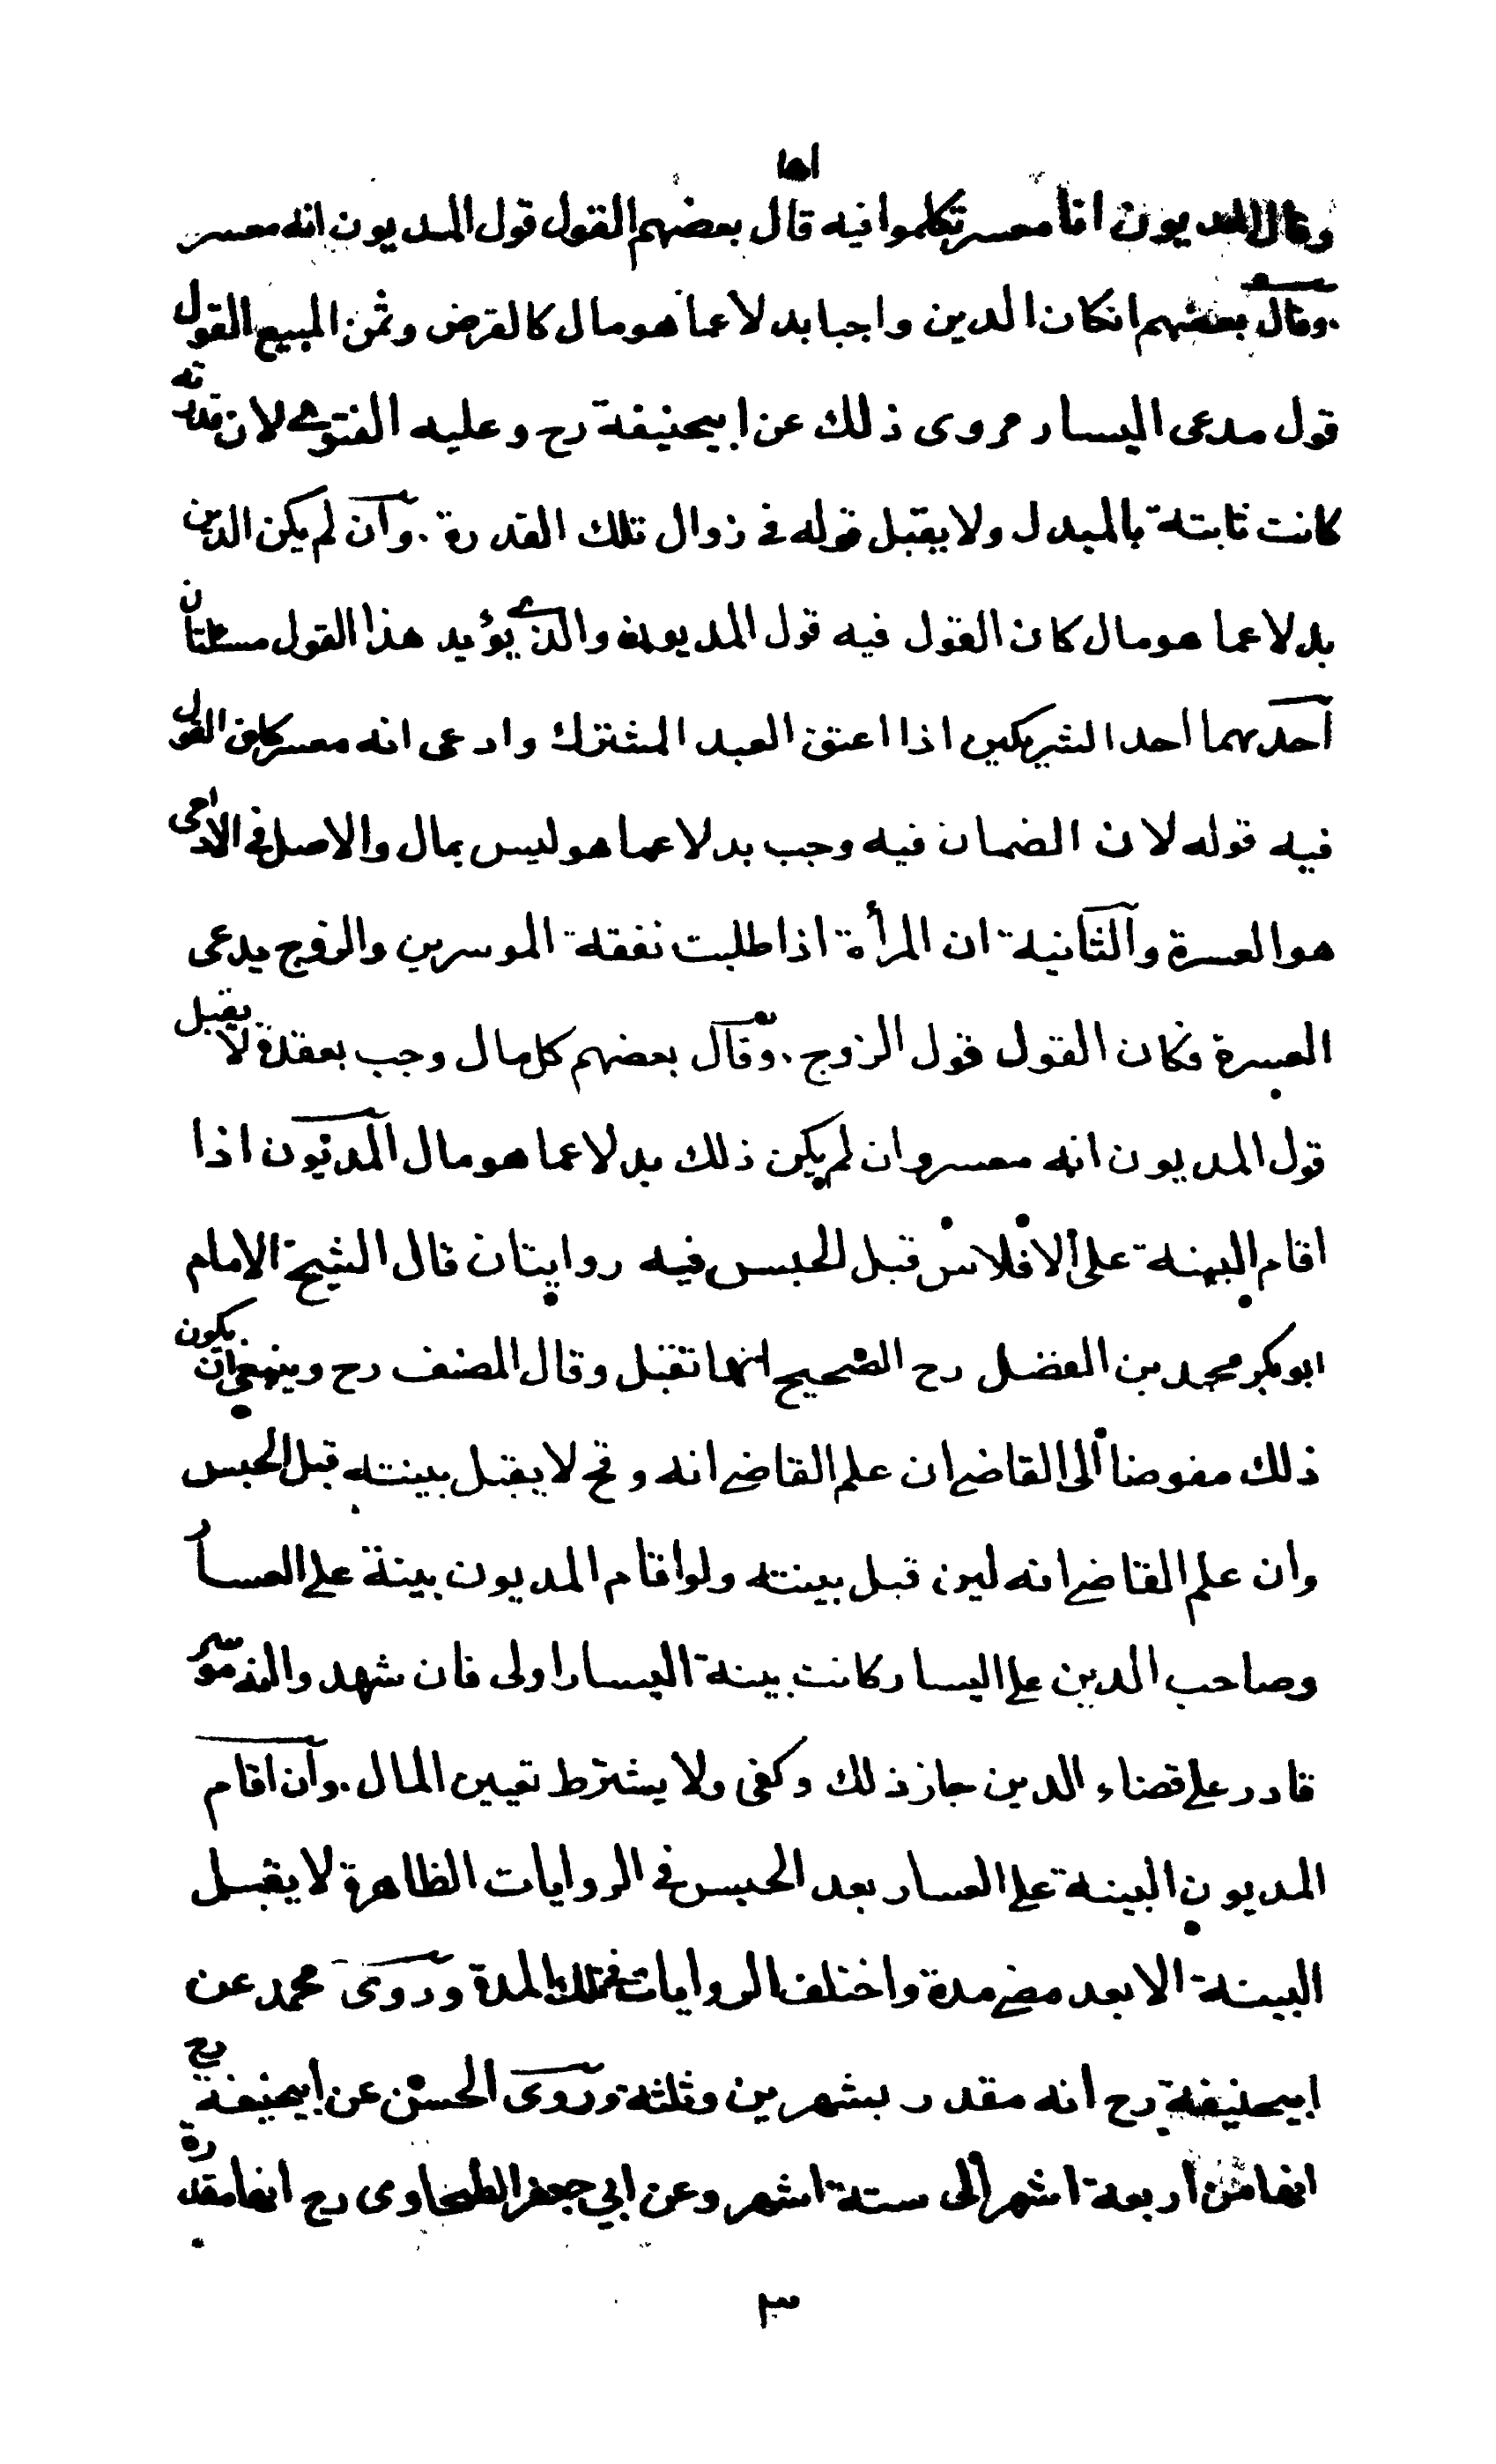 ١٥١
وقال المديون انا معسر تكلموا فيه قال بعضهم القول قول المديون انه معسر
وقال بعضهم انكان الدين واجبا بدلا عما هو مال كالقرض وثمن المبيع القول
قول مدعى اليسار مروى ذلك عن ابيحنيفة رح وعليه الفتوى لان قدرته
كانت ثابتة بالمبدل ولا يقبل قوله في زوال تلك القدرة . وان لم يكن الدين
بدلا عما هو مال كان القول فيه قول المديون والذي يؤيد هذا القول مسئلتان
احدهما احد الشريكين اذا اعتق العبد المشترك وادعى انه معسر كان القول
فيه قوله لان الضمان فيه وجب بدلا عما هو ليس بمال والاصل في الادمى
هو العسرة والثانية ان المرأة اذا طلبت نفقة الموسرين والزوج يدعى
العسرة فكان القول قول الزوج . وقال بعضهم كل مال وجب بعقدة لا يقبل
قول المديون انه معسر وان لم يكن ذلك بدلا عما هو مال المديون اذا
اقام البينة على الافلاس قبل الحبس فيه روايتان قال الشيخ الامام
ابو بكر محمد بن الفضل رح الصحيح انها تقبل وقال المصنف رح وينبغي ان يكون
ذلك مفوضا الى القاضي ان علم القاضي انه وقح لا يقبل بينته قبل الحبس
وان علم القاضي انه لين قبل بينته ولو اقام المديون بينة على العسار
وصاحب الدين على اليسار كانت بينة اليسار اولى فان شهدوا انه موسر
قادر على قضاء الدين جاز ذلك وكفى ولا يشترط تعيين المال . وان اقام
المديون البينة على العسار بعد الحبس في الروايات الظاهرة لا يقبل
البينة الا بعد مضي مدة واختلف الروايات في تلك المدة وروى محمد عن
ابيحنيفة رح انه مقدر بشهرين وثلثة وروى الحسن عن ابيحنيفة رح
انها من اربعة اشهر الى ستة اشهر وعن ابي جعفر الطحاوى رح انها مقدرة